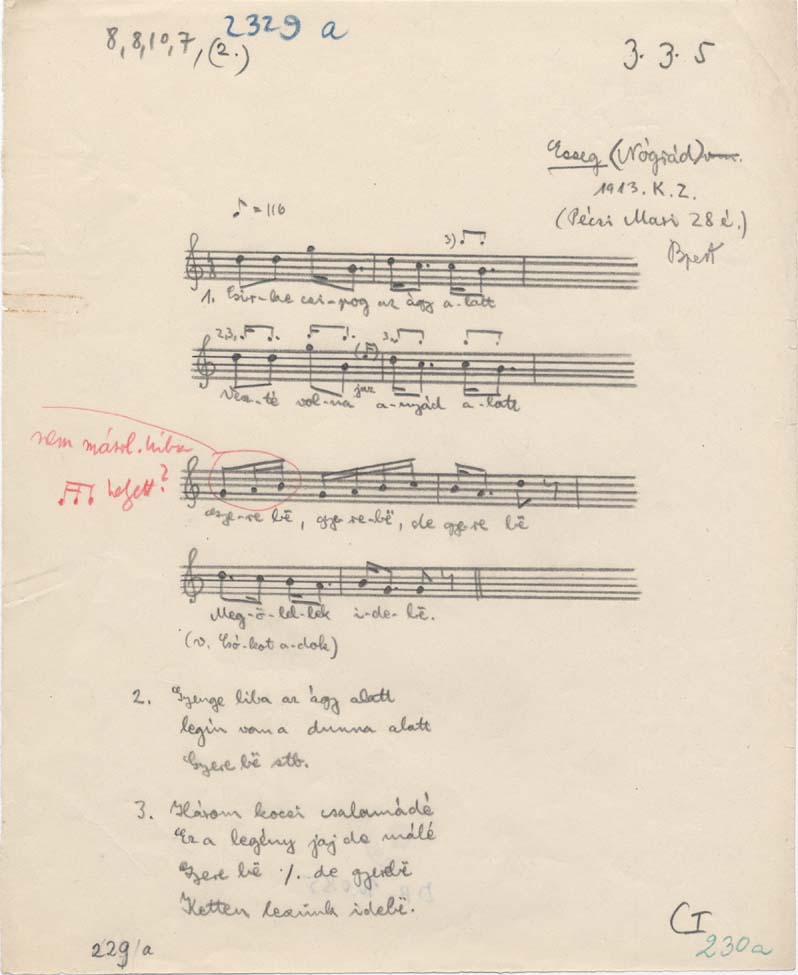 2329 a
8, 8, 10, 7, (2.)
3. 3. 5
Ecseg (Nógrád)
1913. K. Z.
(Péczi Mari 28 é.)
♪ = 116
3)
1. Csir-ke csi-pog az ágy a-latt
2,3.
3.
Vesz-té vol-na a-nyád a-latt
nem másol. hiba
helyett?
Gye-re bë, gye-re-bë, de gye-re bë
Meg-ö-lel-lék i-de-bë.
(v. Csó-kot a-dok)
2. Gyenge liba az ágy alatt
legín van a dunna alatt
Gyere bë stb.
3. Három kocsi csalamádé
Ez a legény jaj de málé
Gyere bë ·/. de gyerebë
Ketten leszünk idebë.
229/a
CI
230a